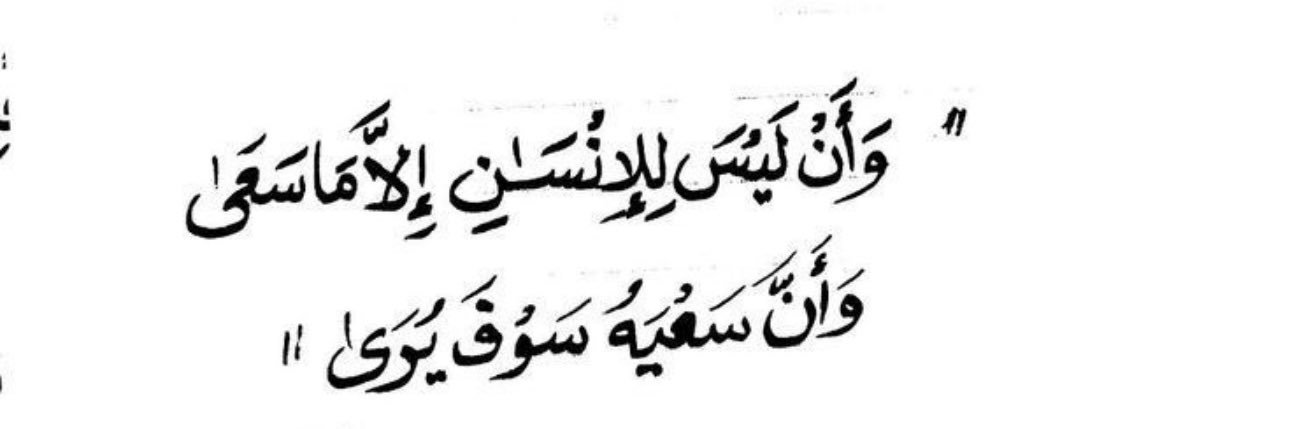 "وَأَنْ لَيْسَ لِلإِنْسَـٰنِ إِلاَّ مَا سَعَىٰ
وَأَنَّ سَعْيَهُ سَوْفَ يُرَىٰ"